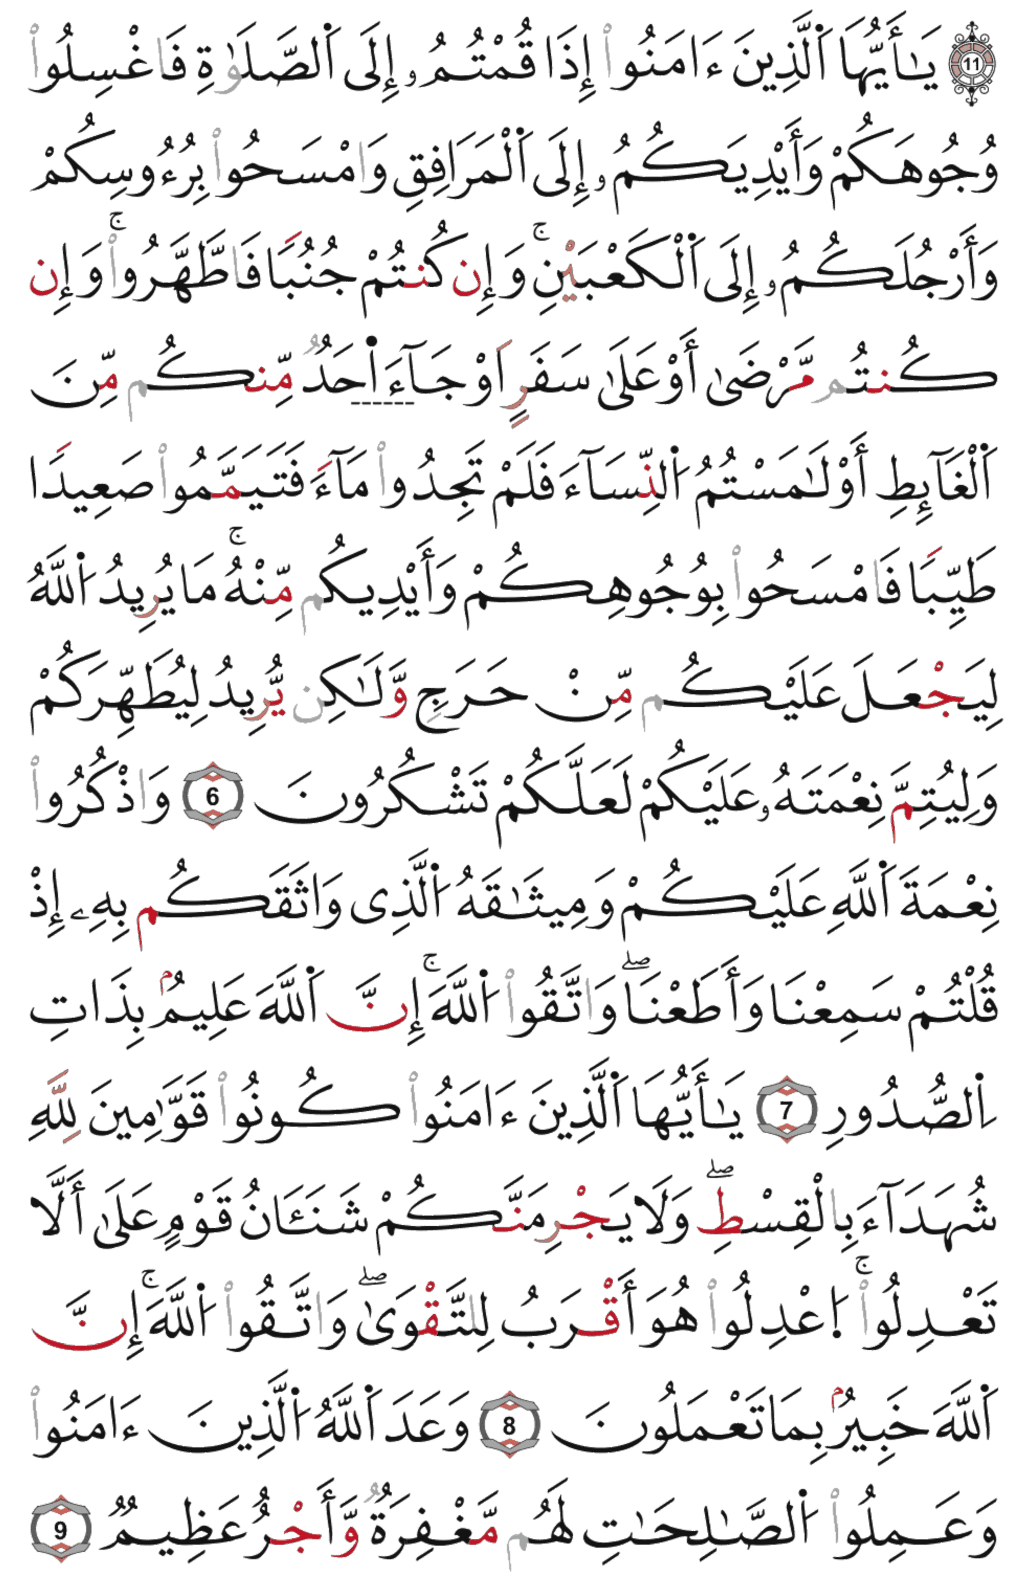 11 يَـٰٓأَيُّهَا اَ۬لَّذِينَ ءَامَنُواْ إِذَا قُمْتُمُۥٓ إِلَى اَ۬لصَّلَوٰةِ فَاغْسِلُواْ
وُجُوهَكُمْ وَأَيْدِيَكُمُۥٓ إِلَى اَ۬لْمَرَافِقِ وَامْسَحُواْ بِرُءُوسِكُمْ
وَأَرْجُلَكُمُۥٓ إِلَى اَ۬لْكَعْبَيْنِۚ وَإِن كُنتُمْ جُنُبًا فَاطَّهَّرُواْۚ وَإِن
كُنتُم مَّرْضَىٰٓ أَوْ عَلَىٰ سَفَرٍ اَوْ جَآءَ اَ۬حَدٌ مِّنكُم مِّنَ
اَ۬لْغَآئِطِ أَوْ لَـٰمَسْتُمُ اُ۬لنِّسَآءَ فَلَمْ تَجِدُواْ مَآءً فَتَيَمَّمُواْ صَعِيدًا
طَيِّبًا فَامْسَحُواْ بِوُجُوهِكُمْ وَأَيْدِيكُم مِّنْهُۚ مَا يُرِيدُ اُ۬للَّهُ
لِيَجْعَلَ عَلَيْكُم مِّنْ حَرَجٍ وَلَـٰكِن يُّرِيدُ لِيُطَهِّرَكُمْ
وَلِيُتِمَّ نِعْمَتَهُۥ عَلَيْكُمْ لَعَلَّكُمْ تَشْكُرُونَ 6 وَاذْكُرُواْ
نِعْمَةَ اَ۬للَّهِ عَلَيْكُمْ وَمِيثَـٰقَهُ اُ۬لَّذِى وَاثَقَكُم بِهِۦٓ إِذْ
قُلْتُمْ سَمِعْنَا وَأَطَعْنَاۖ وَاتَّقُواْ اُ۬للَّهَۚ إِنَّ اَ۬للَّهَ عَلِيمُۢ بِذَاتِ
اِ۬لصُّدُورِ 7 يَـٰٓأَيُّهَا اَ۬لَّذِينَ ءَامَنُواْ كُونُواْ قَوَّٰمِينَ لِلَّهِ
شُهَدَآءَ بِالْقِسْطِۖ وَلَا يَجْرِمَنَّكُمْ شَنَـَٔانُ قَوْمٍ عَلَىٰٓ أَلَّا
تَعْدِلُواْۚ اُ۪عْدِلُواْ هُوَ أَقْرَبُ لِلتَّقْوَىٰۖ وَاتَّقُواْ اُ۬للَّهَۚ إِنَّ
اَ۬للَّهَ خَبِيرُۢ بِمَا تَعْمَلُونَ 8 وَعَدَ اَ۬للَّهُ اُ۬لَّذِينَ ءَامَنُواْ
وَعَمِلُواْ اُ۬لصَّـٰلِحَـٰتِ لَهُم مَّغْفِرَةٌ وَأَجْرٌ عَظِيمٌ 9